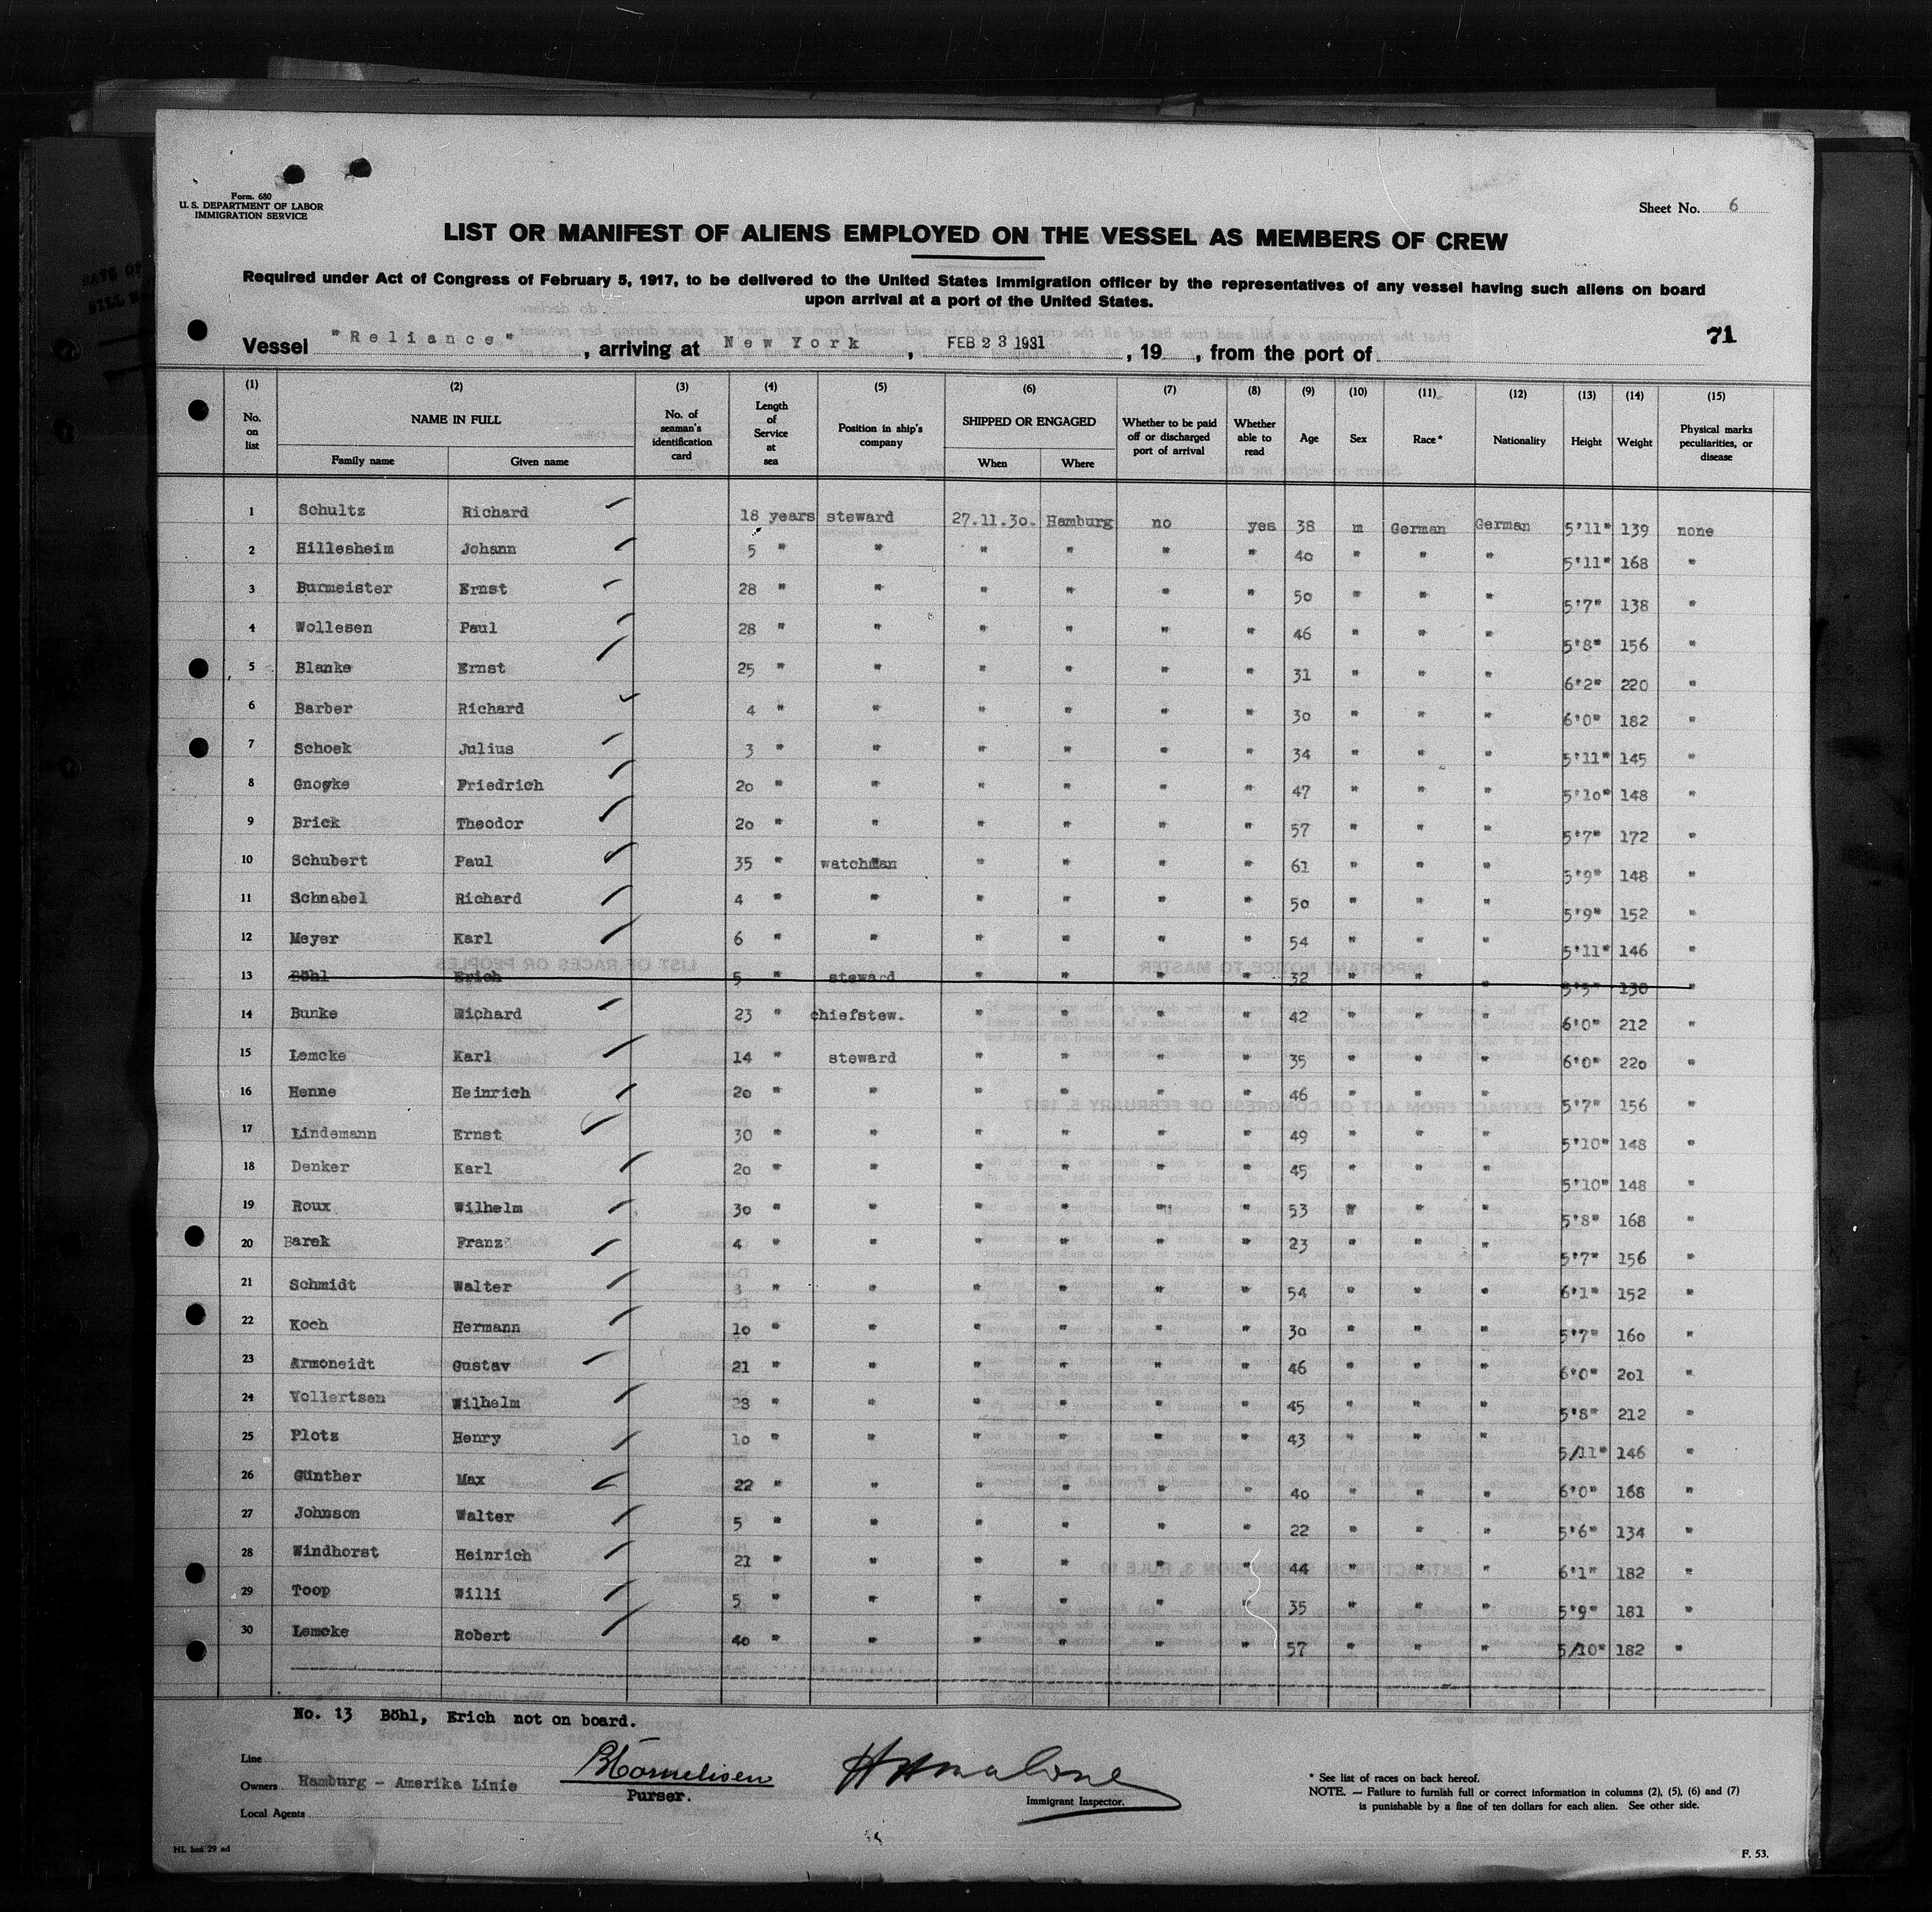 Form. 680
U. S. DEPARTMENT OF LABOR
IMMIGRATION SERVICE
Sheet No. 6
LIST OR MANIFEST OF ALIENS EMPLOYED ON THE VESSEL AS MEMBERS OF CREW
Required under Act of Congress of February 5, 1917, to be delivered to the United States immigration officer by the representatives of any vessel having such aliens on board
upon arrival at a port of the United States.
71
Vessel "Reliance", arriving at New York, FEB 23 1931, 19 , from the port of
(1) (2) (3) (4) (5) (6) (7) (8) (9) (10) (11) (12) (13) (14) (15)
No. on list NAME IN FULL No. of seaman's identification card Length of Service at sea Position in ship's company SHIPPED OR ENGAGED Whether to be paid off or discharged port of arrival Whether able to read Age Sex Race* Nationality Height Weight Physical marks peculiarities, or disease
Family name Given name When Where
1 Schultz Richard 18 years steward 27.11.30. Hamburg no yes 38 m German German 5'11" 139 none
2 Hillesheim Johann 5 " " " " " " 40 " " " 5'11" 168 "
3 Burmeister Ernst 28 " " " " " " 50 " " " 5'7" 138 "
4 Wollesen Paul 28 " " " " " " 46 " " " 5'8" 156 "
5 Blanke Ernst 25 " " " " " " 31 " " " 6'2" 220 "
6 Barber Richard 4 " " " " " " 30 " " " 6'0" 182 "
7 Schoek Julius 3 " " " " " " 34 " " " 5'11" 145 "
8 Gnoyke Friedrich 20 " " " " " " 47 " " " 5'10" 148 "
9 Brick Theodor 20 " " " " " " 57 " " " 5'7" 172 "
10 Schubert Paul 35 " watchman " " " " 61 " " " 5'9" 148 "
11 Schnabel Richard 4 " " " " " " 50 " " " 5'9" 152 "
12 Meyer Karl 6 " " " " " " 54 " " " 5'11" 146 "
13 Böhl Erich 5 " steward " " " " 32 " " " 5'5" 130 "
14 Bunke Richard 23 " chiefstew. " " " " 42 " " " 6'0" 212 "
15 Lemcke Karl 14 " steward " " " " 35 " " " 6'0" 220 "
16 Henne Heinrich 20 " " " " " " 46 " " " 5'7" 156 "
17 Lindemann Ernst 30 " " " " " " 49 " " " 5'10" 148 "
18 Denker Karl 20 " " " " " " 45 " " " 5'10" 148 "
19 Roux Wilhelm 30 " " " " " " 53 " " " 5'8" 168 "
20 Barek Franz 4 " " " " " " 23 " " " 5'7" 156 "
21 Schmidt Walter " " " " " " 54 " " " 6'1" 152 "
22 Koch Hermann 10 " " " " " " 30 " " " 5'7" 160 "
23 Armoneidt Gustav 21 " " " " " " 46 " " " 6'0" 201 "
24 Vollertsen Wilhelm 28 " " " " " " 45 " " " 5'8" 212 "
25 Plotz Henry 10 " " " " " " 43 " " " 5/11" 146 "
26 Günther Max 22 " " " " " " 40 " " " 6'0" 168 "
27 Johnson Walter 5 " " " " " " 22 " " " 5'6" 134 "
28 Windhorst Heinrich 21 " " " " " " 44 " " " 6'1" 182 "
29 Toop Willi 5 " " " " " " 35 " " " 5'9" 181 "
30 Lemcke Robert 40 " " " " " " 57 " " " 5/10" 182 "
No. 13 Böhl, Erich not on board.
Line
Owners Hamburg - Amerika Linie
Local Agents
BCornelisen
Purser.
HHmalone
Immigrant Inspector.
* See list of races on back hereof.
NOTE. — Failure to furnish full or correct information in columns (2), (5), (6) and (7)
is punishable by a fine of ten dollars for each alien. See other side.
F. 53.